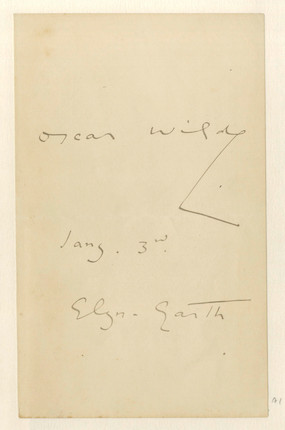 Oscar Wilde
Jany. 3rd.
Glyn-Garth